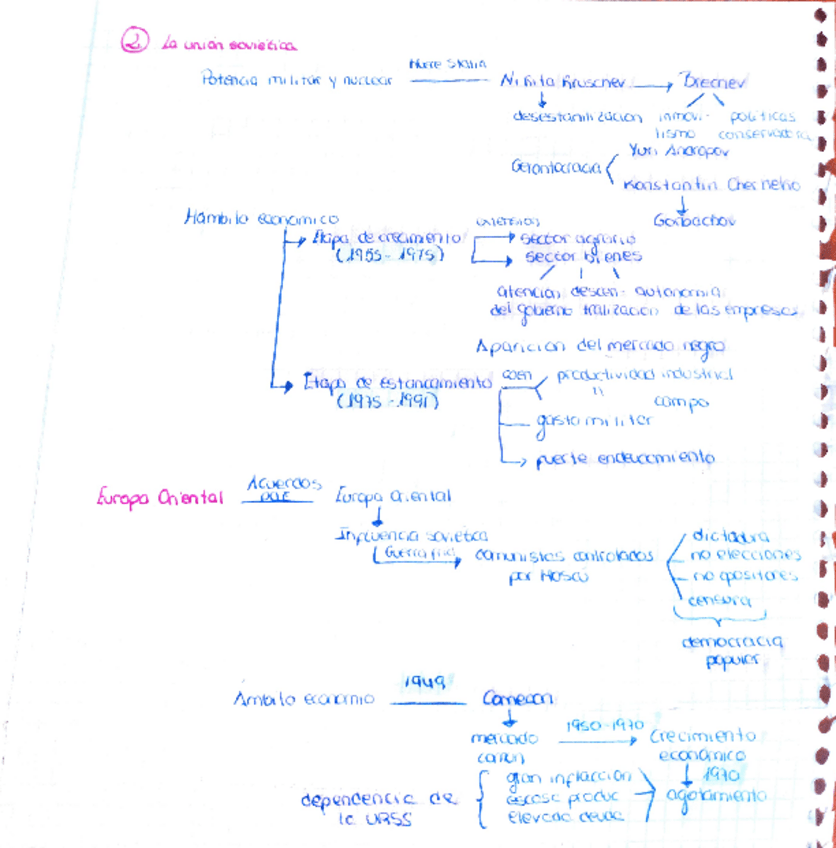 2. La unión soviética
Potencia militar y nuclear Muere Stalin Nikita Kruschev Brecnev
desestanilización inmovi- políticas
lismo conservadora
Gerontocracia Yuri Andropov
Konstantin Chernenko
Gorbachov
Hámbito económico
Etapa de crecimiento sector agrario
(1955-1975) sector bienes
atención descen- autonomía
del gobierno tralización de las empresas
Aparición del mercado negro
Etapa de estancamiento caen productividad industrial
(1975-1991) " campo
gasto militar
fuerte endeudamiento
Europa Oriental Acuerdos Europa Oriental
Influencia soviética
Guerra fría comunistas controlados
por Moscú
dictadura
no elecciones
no opositores
censura
democracia
popular
Ámbito economio 1949 Comecon
mercado 1950-1970 Crecimiento
común económico
1970
gran inflacción
dependencia de escase produc agotamiento
la URSS elevada deuda